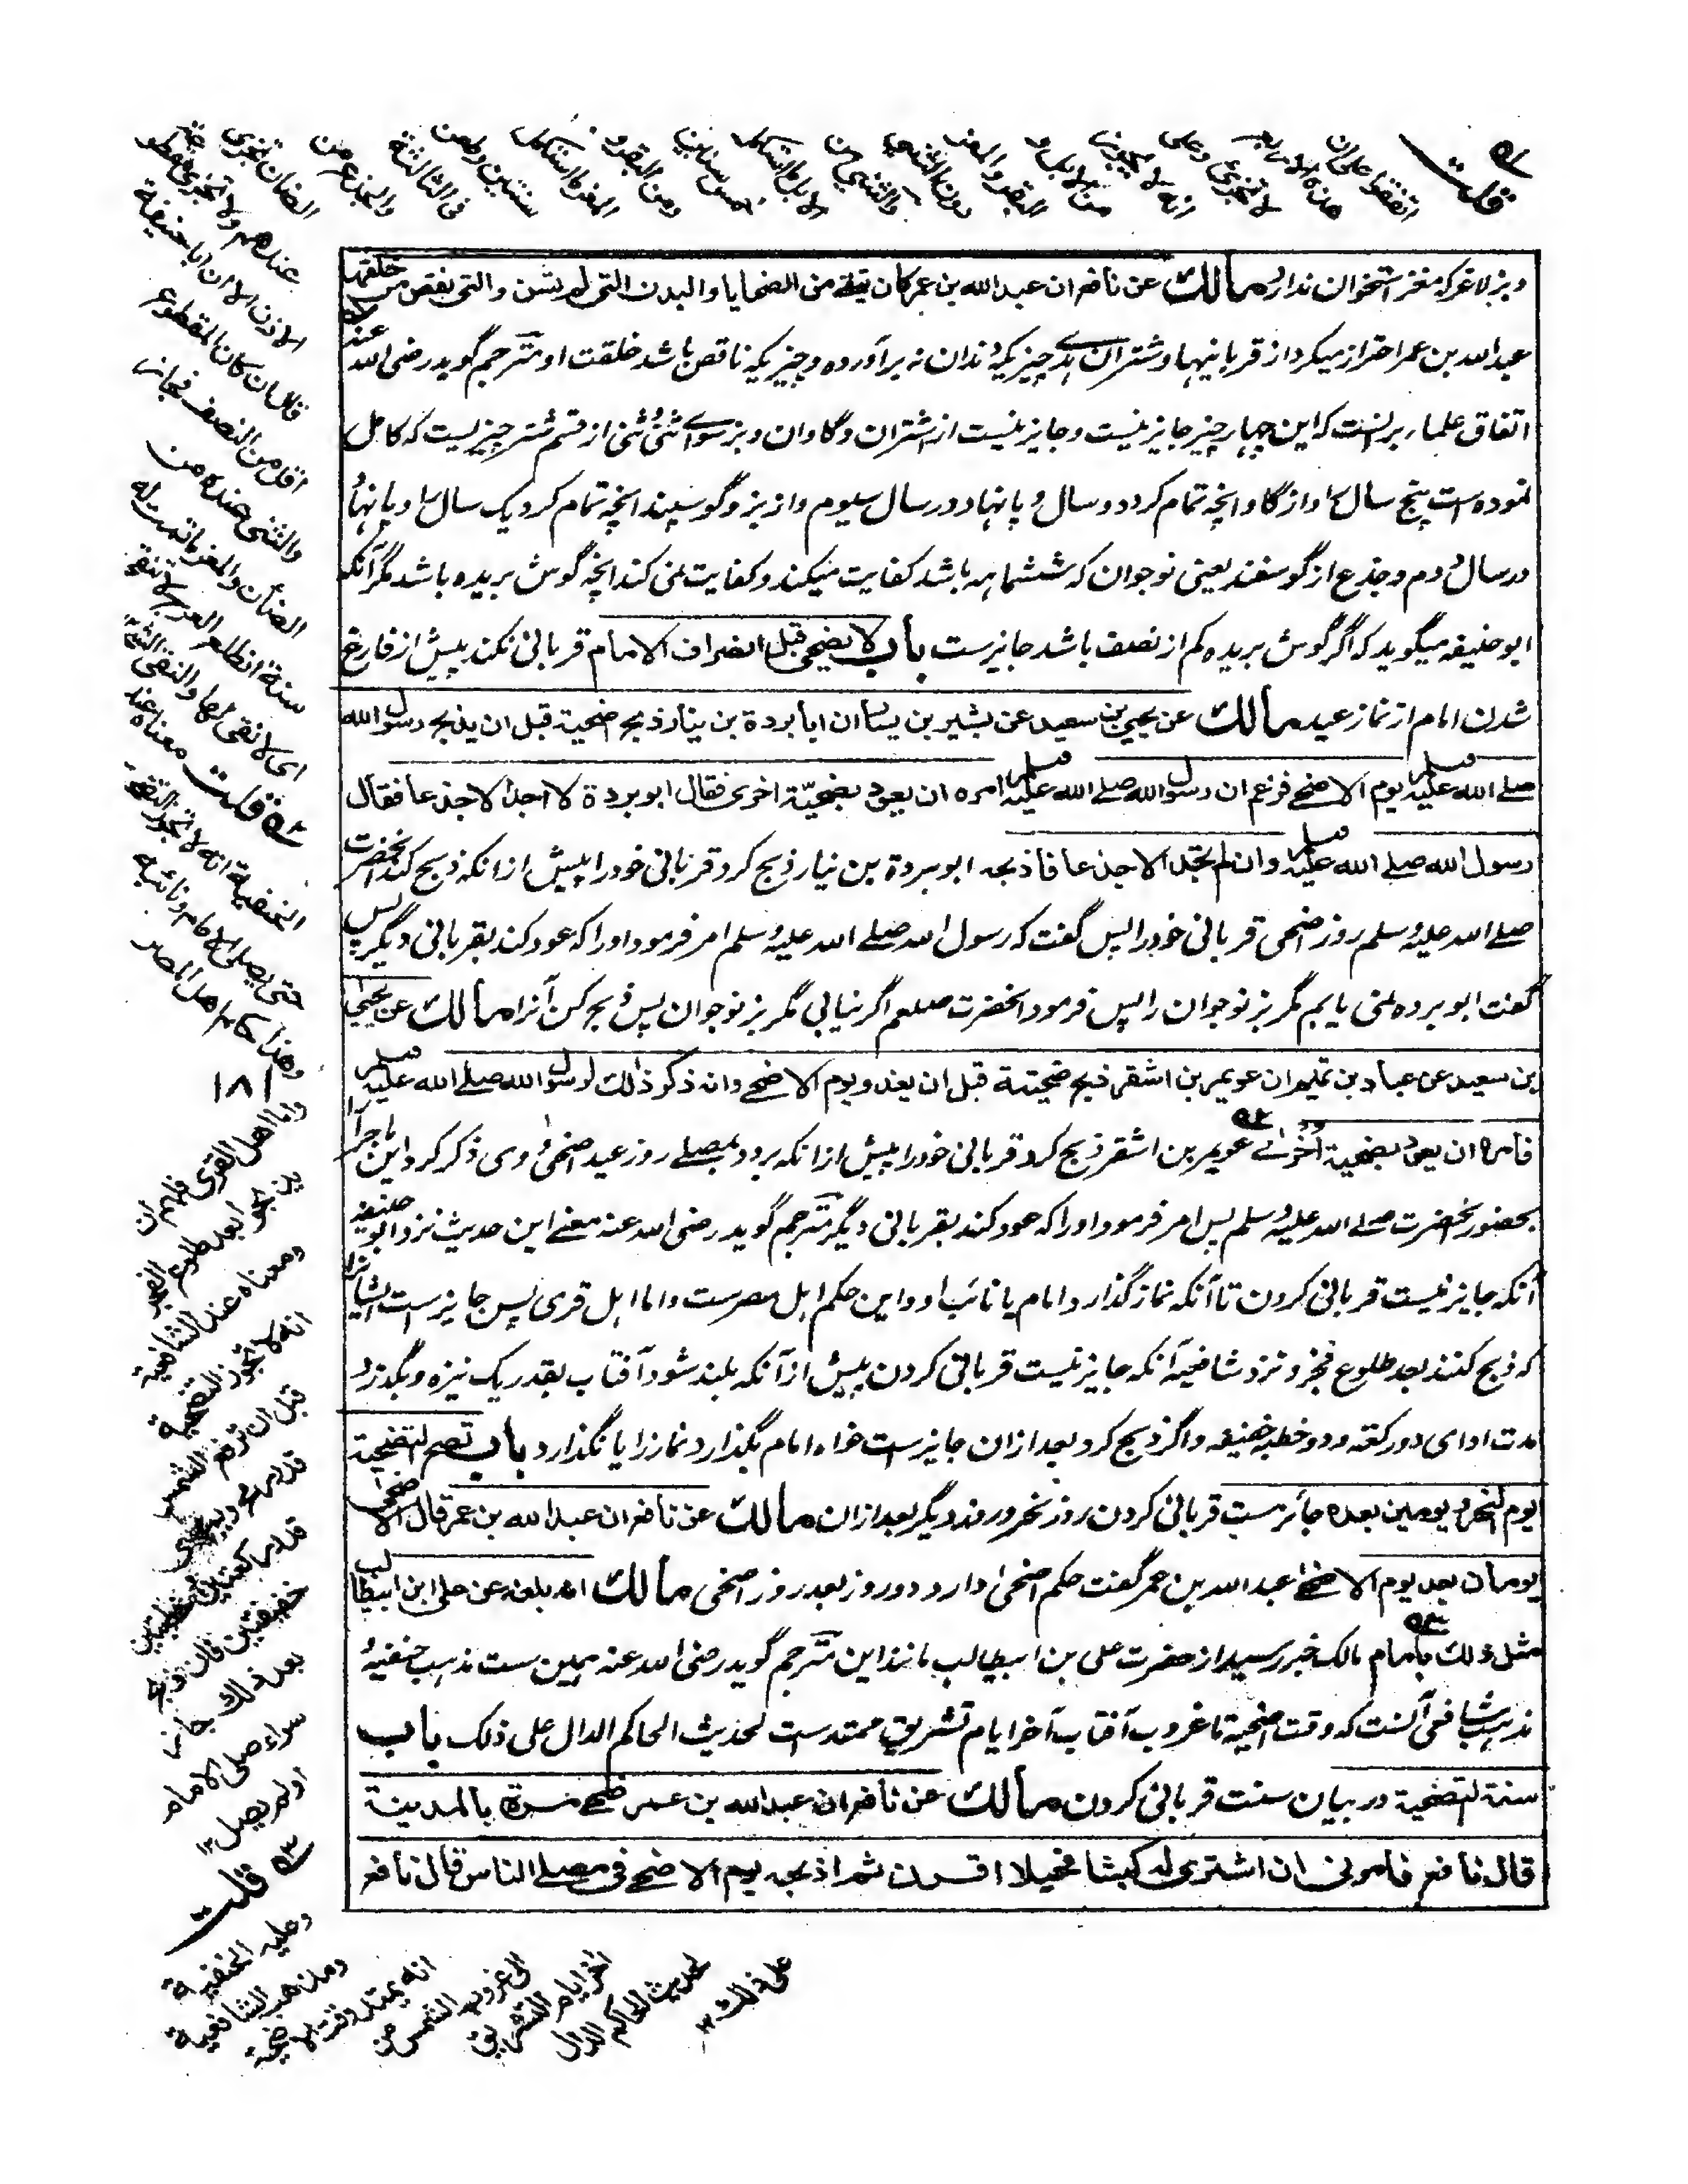 قلت
اتفقوا على ان
هذه الاربعة
لا تجزئ وعلى
انه لا يجوز
من الابل و
البقر والمعز
دون الثنى
والثنى من
الابل ما استكمل
خمس سنين
ومن البقر و
المعز ما استكمل
سنتين وطعن
فى الثالثة
والجذع من
الضان تجزئ
وبز لاغر که مغز استخوان ندارد مالك عن نافع ان عبد الله بن عمر كان يتقى من الضحايا والبدن التى لم تسن والتى نقص من خلقها
عبد الله بن عمر احتراز میکرد از قربانیها و شتران هدی چیزیکه دندان نه برآورده و چیزیکه ناقص باشد خلقت او مترجم گوید رضی الله عنه
اتفاق علماء برانست که این چهار چیز جایز نیست و جایز نیست از شتران و گاوان و بز سوای ثنی ثنی از قسم شتر چیزیست که کامل
نموده است پنج سال را و از گاو انچه تمام کرد دو سال و پا نهاد در سال سیوم و از بز و گوسپند انچه تمام کرد یک سال را و پا نهاد
در سال دوم و جذع از گوسفند یعنی نوجوان که ششماهه باشد کفایت میکند و کفایت نمی کند انچه گوش بریده باشد مگر آنکه
ابو حنیفه میگوید که اگر گوش بریده کم از نصف باشد جایزست باب لا يضحى قبل انصراف الامام قربانی نکند پیش از فارغ
شدن امام از نماز عید مالك عن يحيى بن سعيد عن بشير بن يسار ان ابا بردة بن نيار ذبح ضحية قبل ان يذبح رسول الله
صلى الله عليه وسلم يوم الاضحى فزعم ان رسول الله صلى الله عليه وسلم امره ان يعود بضحية اخرى فقال ابو بردة لا اجد الا جذعا فقال
رسول الله صلى الله عليه وسلم وان لم تجد الا جذعا فاذبحه ابو بردة بن نیار ذبح کرد قربانی خود را پیش از انکه ذبح کند انحضرت
صلى الله عليه وسلم روز اضحی قربانی خود را پس گفت که رسول الله صلی الله علیه وسلم امر فرمود او را که عود کند بقربانی دیگر پس
گفت ابو برده نمی یابم مگر بز نوجوان را پس فرمود انحضرت صلعم اگر نیابی مگر بز نوجوان پس ذبح کن آنرا مالك عن يحيى
بن سعيد عن عباد بن تميم ان عويمر بن اشقر ذبح ضحيته قبل ان يغدو يوم الاضحى وانه ذكر ذلك لرسول الله صلى الله عليه وسلم
فامره ان يعود بضحية اخرى عویمر بن اشقر ذبح کرد قربانی خود را پیش از انکه برود بمصلے روز عید اضحی و وی ذکر کرد این ماجرا
بحضور انحضرت صلی الله علیه وسلم پس امر فرمود او را که عود کند بقربانی دیگر مترجم گوید رضی الله عنه معنے این حدیث نزد ابو حنیفه
آنکه جایز نیست قربانی کردن تا آنکه نماز گذارد امام یا نائب او و این حکم اهل مصرست و اما اهل قری پس جایزست ایشانرا
که ذبح کنند بعد طلوع فجر و نزد شافعیه آنکه جایز نیست قربانی کردن پیش از آنکه بلند شود آفتاب بقدر یک نیزه و بگذرد
مدت ادای دو رکعت و دو خطبه خفیفه و اگر ذبح کرد بعد ازان جایزست خواه امام بگذارد نماز را یا نگذارد باب تصح التضحية
يوم النحر ويومين بعده جائزست قربانی کردن روز نحر و دو روز دیگر بعد ازان مالك عن نافع ان عبد الله بن عمر قال الاضحى
يومان بعد يوم الاضحى عبد الله بن عمر گفت حکم اضحی دارد دو روز بعد روز اضحی مالك انه بلغه عن على ابن ابيطالب
مثل ذلك بامام مالک خبر رسید از حضرت علی بن ابیطالب مانند این مترجم گوید رضی الله عنه همین ست مذهب حنفیه و
مذهب شافعی آنست که وقت اضحیة تا غروب آفتاب آخر ایام تشریق ممتدست لحدیث الحاکم الدال علی ذلک باب
سنة التضحية در بیان سنت قربانی کردن مالك عن نافع ان عبد الله بن عمر ضحى مرة بالمدينة
قال نافع فامرنى ان اشترى له كبشا فحيلا اقرن ثم اذبحه يوم الاضحى فى مصلى الناس قال نافع
عندهم ولا تجزئ مقطوعة
الاذن الا ان ابا حنيفة
قال ان كان المقطوع
اقل من النصف فجائز
والثنى عنده من
الضأن والمعز ما تمت له
سنة
اى لا نقى لها والنقى الشحم
قلت معناه عند
الحنفية انه لا تجوز التضحية
حتى يصلى الامام او نائبه
وهذا حكم اهل المصر
۱۸۱
واما اهل القرى فلهم ان
يذبحوا بعد طلوع الفجر
ومعناه عند الشافعية
انه لا تجوز التضحية
قبل ان ترتفع الشمس
قدر رمح ويمضى
قدر ركعتين وخطبتين
خفيفتين فان ذبح
بعد ذلك جاز
سواء صلى الامام
او لم يصل ۱۲
قلت
وعليه الحنفية
ومذهب الشافعية
انه يمتد وقت الاضحية
الى غروب الشمس من
اخر ايام التشريق
لحديث الحاكم الدال
على ذلك ۱۲